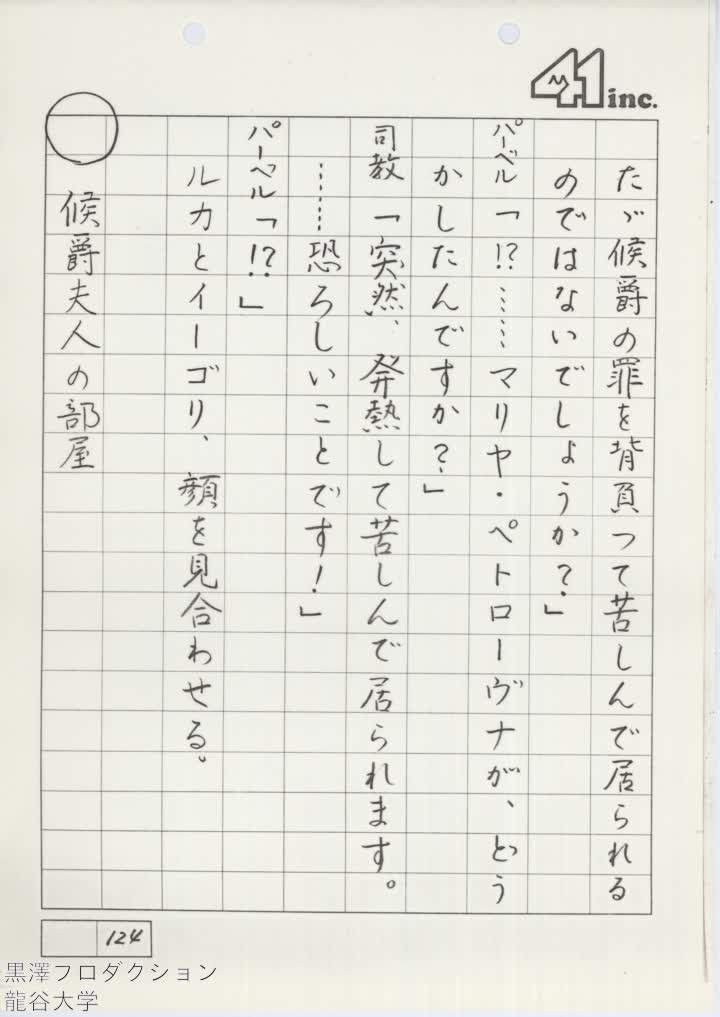 41 inc.
たゞ候爵の罪を背負つて苦しんで居られる
のではないでしょうか?」
パーベル「!?……マリヤ・ペトローヴナが、どう
かしたんですか?」
司教「突然、発熱して苦しんで居られます。
……恐ろしいことです!」
パーベル「!?」
ルカとイーゴリ、顔を見合わせる。
候爵夫人の部屋
124
黒澤プロダクション
龍谷大学